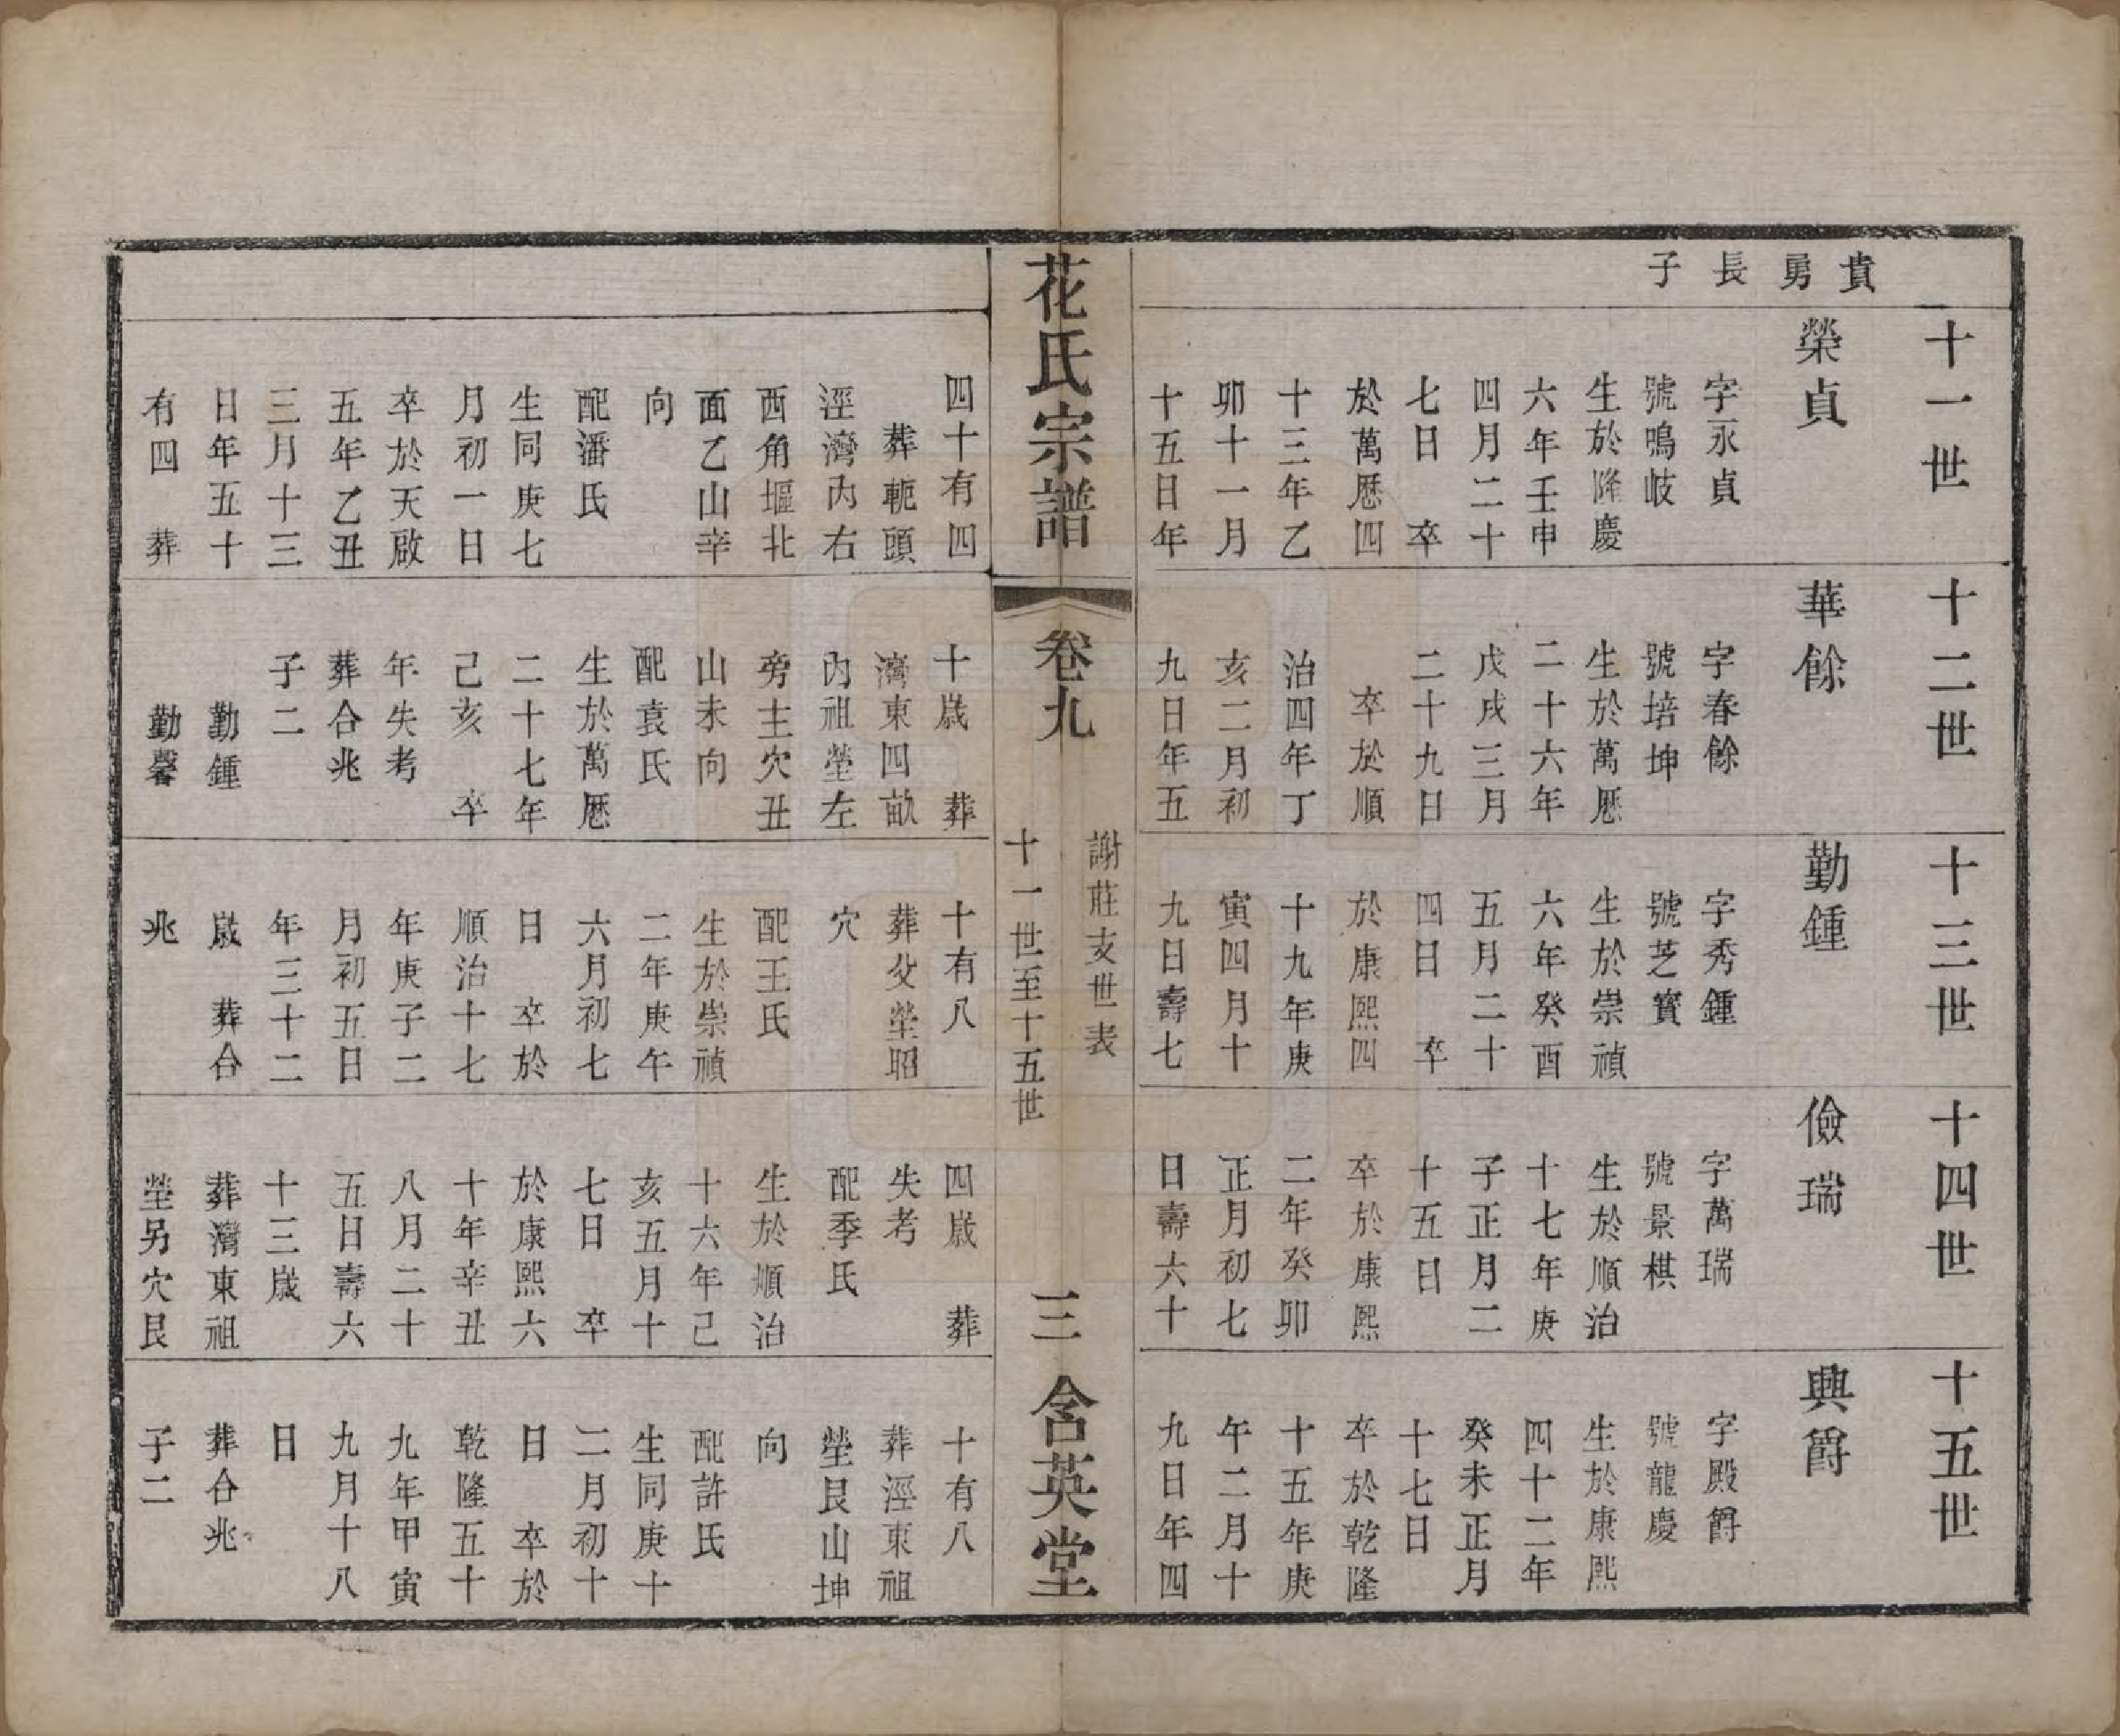 貴勇長子
十一世
榮貞
字永貞
號鳴岐
生於隆慶
六年壬申
四月二十
七日　卒
於萬厯四
十三年乙
卯十一月
十五日年
四十有四
葬軛頭
涇灣內右
西角堰北
面乙山辛
向
配潘氏
生同庚七
月初一日
卒於天啟
五年乙丑
三月十三
日年五十
有四　葬
十二世
華餘
字春餘
號培坤
生於萬厯
二十六年
戊戌三月
二十九日
卒於順
治四年丁
亥二月初
九日年五
十歲　葬
灣東四畝
內祖塋左
旁主穴丑
山未向
配袁氏
生於萬厯
二十七年
己亥　卒
年失考
葬合兆
子二
勤鍾
勤馨
十三世
勤鍾
字秀鍾
號芝寶
生於崇禎
六年癸酉
五月二十
四日　卒
於康熙四
十九年庚
寅四月十
九日壽七
十有八
葬父塋昭
穴
配王氏
生於崇禎
二年庚午
六月初七
日　卒於
順治十七
年庚子二
月初五日
年三十二
歲　葬合
兆
十四世
儉瑞
字萬瑞
號景棋
生於順治
十七年庚
子正月二
十五日
卒於康熙
二年癸卯
正月初七
日壽六十
四歲　葬
失考
配季氏
生於順治
十六年己
亥五月十
七日　卒
於康熙六
十年辛丑
八月二十
五日壽六
十三歲
葬灣東祖
塋另穴艮
十五世
興爵
字殿爵
號龍慶
生於康熙
四十二年
癸未正月
十七日
卒於乾隆
十五年庚
午二月十
九日年四
十有八
葬涇東祖
塋艮山坤
向
配許氏
生同庚十
二月初十
日　卒於
乾隆五十
九年甲寅
九月十八
日
葬合兆
子二
花氏宗譜
卷九
謝莊支世表
十一世至十五世
三
含英堂